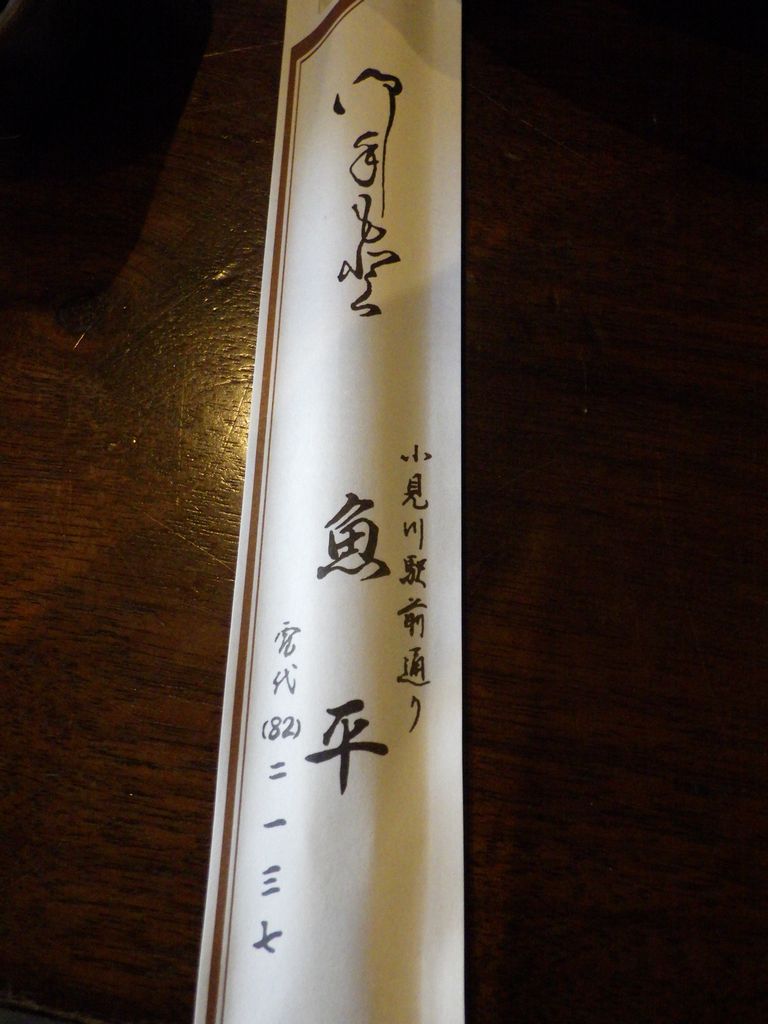 御手もと
小見川駅前通り
魚平
電代(82)二一三七